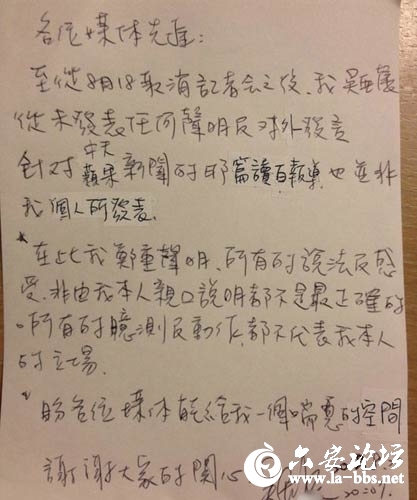 各位媒体先進:
至從8月18取消記者會之後,我吳亞馨
從未發表任何聲明及对外發言
針对中天蘋果新聞的那篇讀者報導,也並非
我個人所發表.
*在此我鄭重聲明,所有的說法及感
受,非由我本人親口說明都不是最正確的
。所有的臆測及動作,都不代表我本人
的立場.
*盼各位媒体能給我一個喘息的空間
謝謝大家的關心
六安论坛
www.la-bbs.net